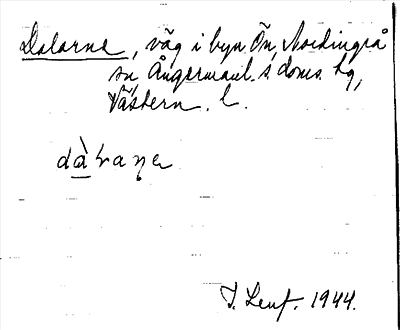 Dalarna, väg i byn Ön, Nordingrå
sn Ångermanl. s. doms. hg,
Västern. l.
dàɽaɳa
J. Lenf. 1944.